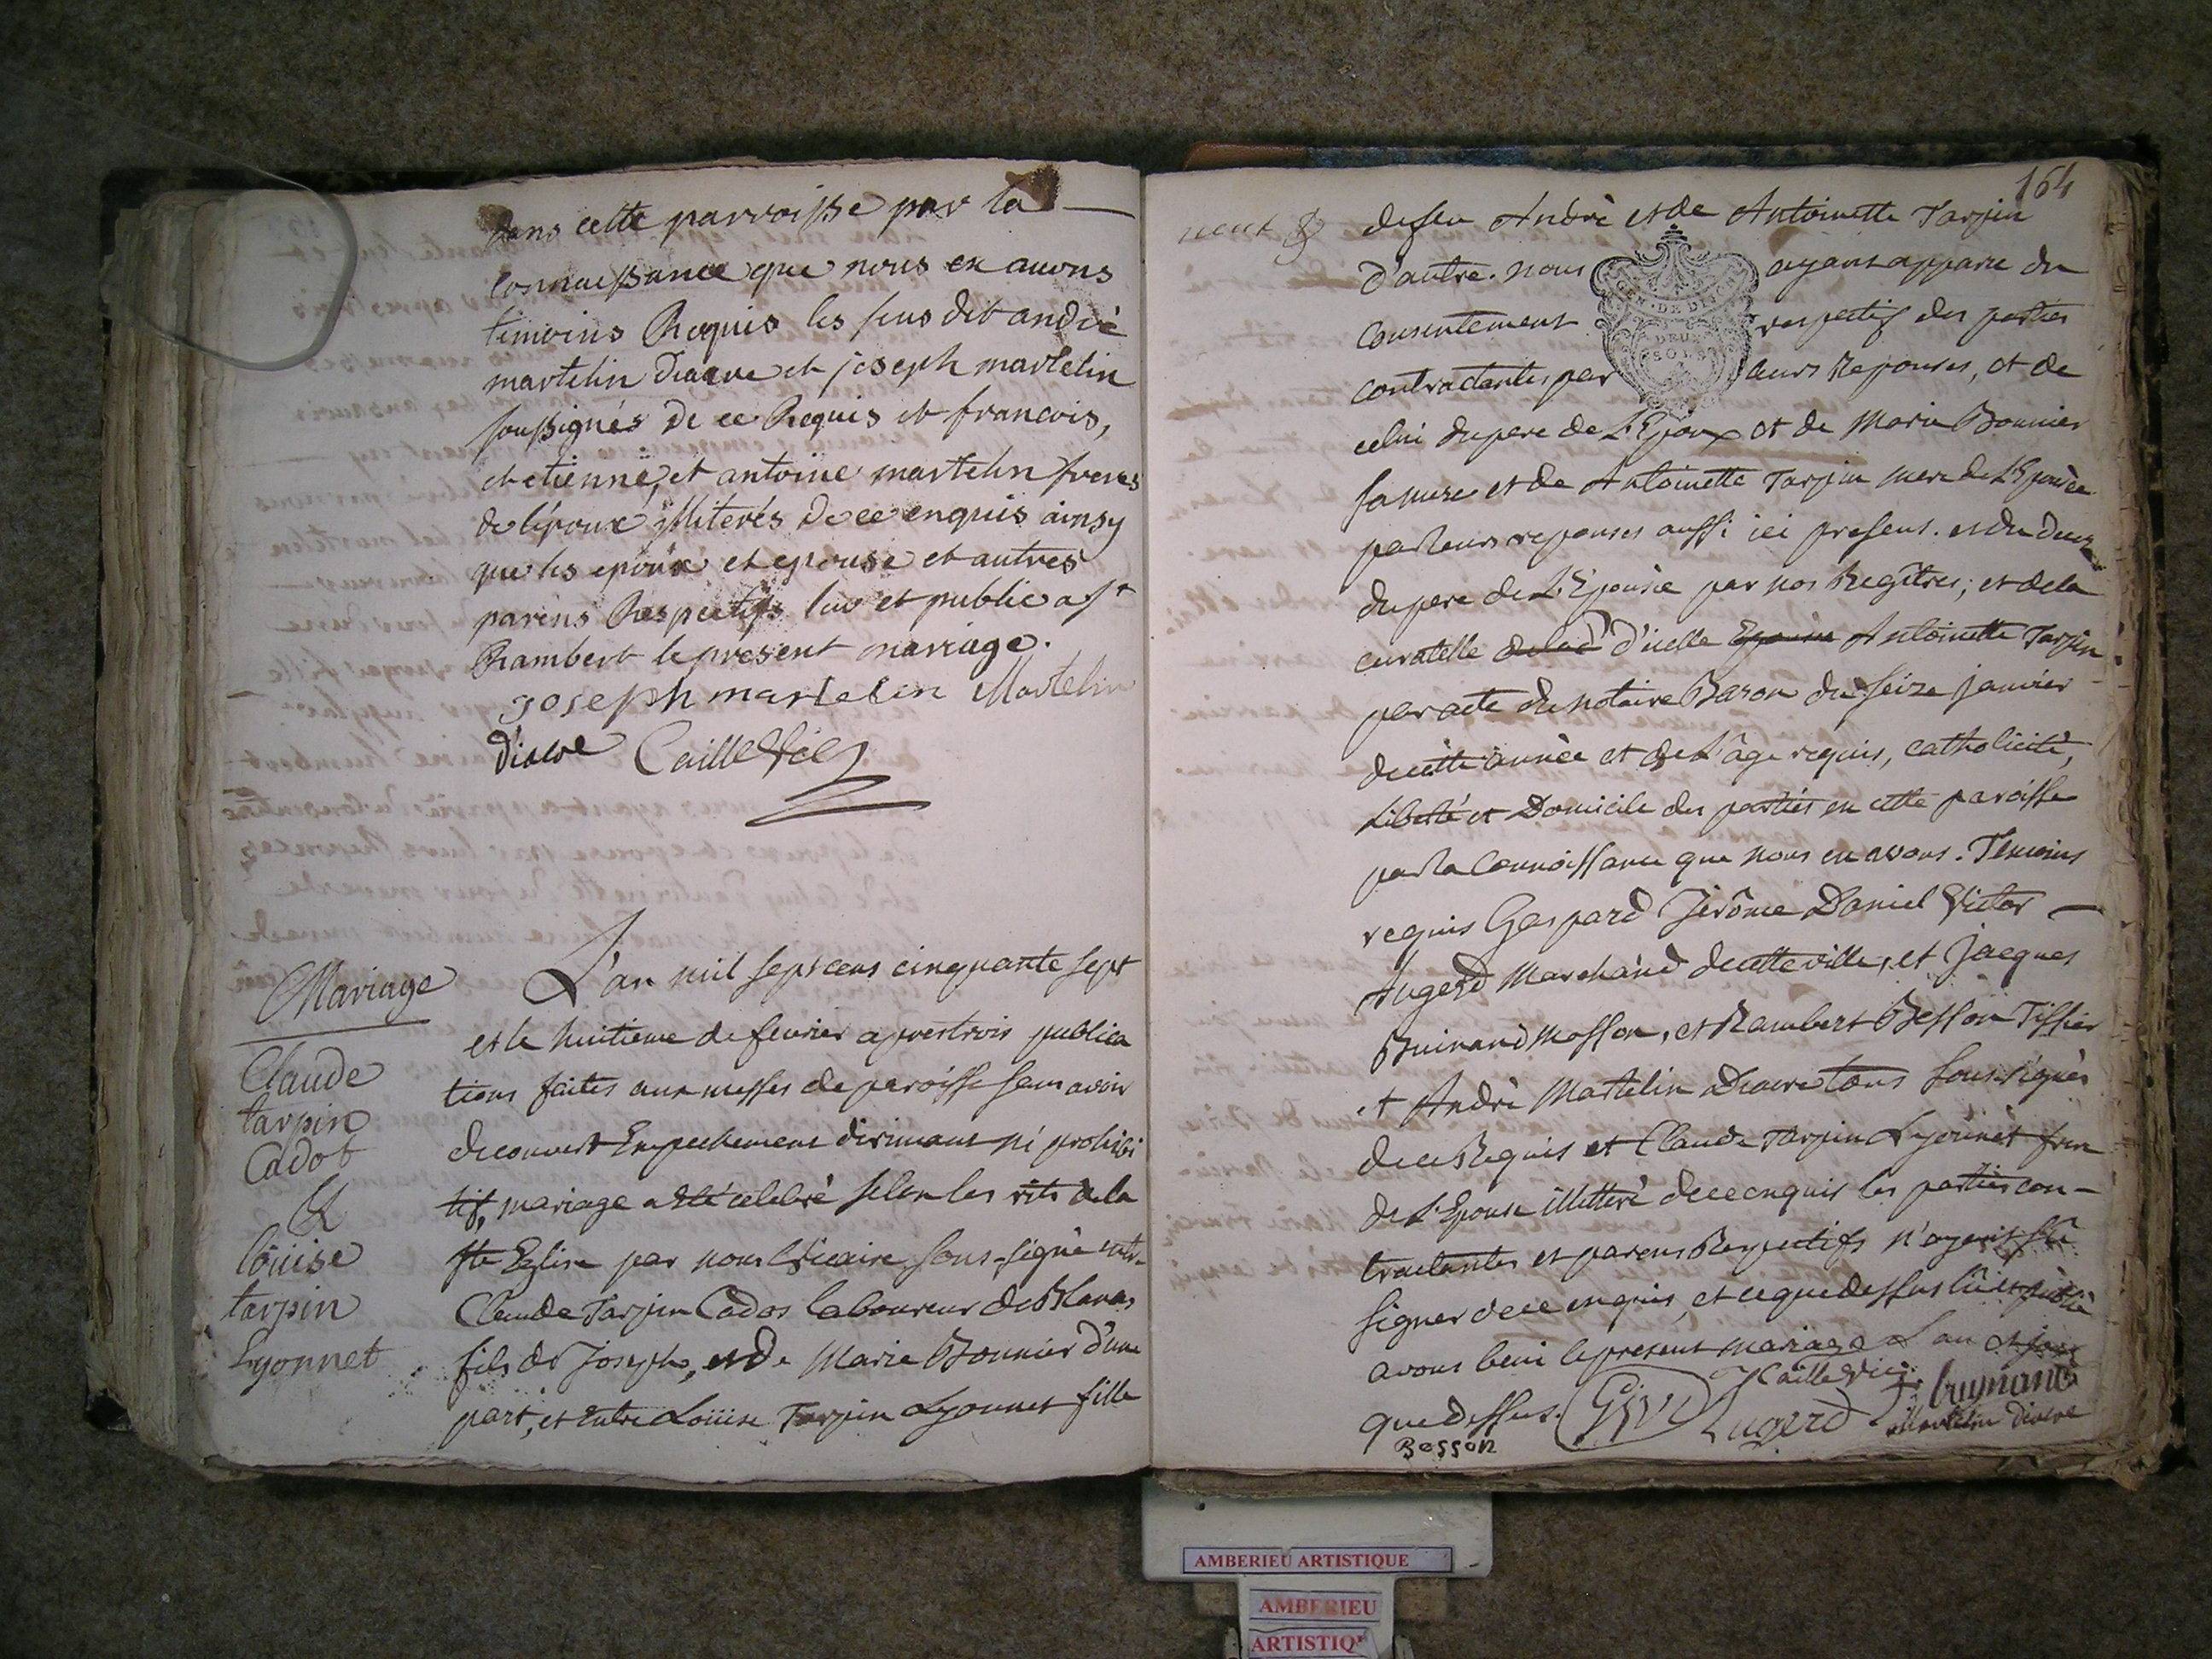 dans cette parroisse par la
connaissance que nous en auons
temoins Requis les sus dit andré
martelin Diacre et joseph martelin
soussignés de ce Requis et francois,
et etienne, et antoine martelin freres
de l'époux illiterés de ce enquis ainsy
que les epoux et epouse et autres
parens Respectifs lu et publié a st
Rambert le present mariage.
joseph martelin Martelin
diacre Caille Vic
Mariage
Claude
tarpin
Cadot
&
loüise
tarpin
Lyonnet
L'an mil sept cens cinquante sept
et le huitieme de fevrier apres trois publica
tions faites aux messes de paroisse sans avoir
decouvert Empechement dirimant ni prohibi
tif, mariage a eté celebré selon les rits de la
Ste Eglise par nous Vicaire sous-signé entre
Claude Tarpin Cados laboureur de Blanas
fils de Joseph, et de Marie Bonnier d'une
part, et entre Loüise Tarpin Lyonnet fille
164
de feu André et de Antoinette Tarpin
d'autre. nous ayant apparu du
consentement respectif des parties
contractantes par leurs Reponses, et de
celui du pere de L'Epoux et de Marie Bonnier
sa mere et de Antoinette Tarpin mere de L'Epousée
par leurs reponses aussi ici presens. et du deces
du pere de L'Epousée par nos Regîtres; et de la
curatelle d'icelle Epousée Antoinette Tarpin
par acte du notaire Baron du seize janvier
de cette année et de L'âge requis, catholicité,
Liberté et Domicile des parties en cette paroisse
par la connoissance que nous en avons. Temoins
requis Gaspard Jerôme Daniel Victor
Augerd Marchand de cette ville, et Jacques
Buinand Masson, et Rambert Besson Tissier
et André Martelin Diacre tous sous signés
de ce Requis et Claude Tarpin Lyonnet frere
de L'Epouse illitteré de ce enquis les parties con-
tractantes et parens Respectifs n'ayant sû
signer de ce enquis, et ce que dessus lû et publié
avons beni le present mariage L'an et jour
que dessus. Caille Vic.
Augerd
Martelin diacre
Besson
GEN. DE DIJON
DEUX
SOLS
AMBERIEU ARTISTIQUE
AMBERIEU
ARTISTIQ